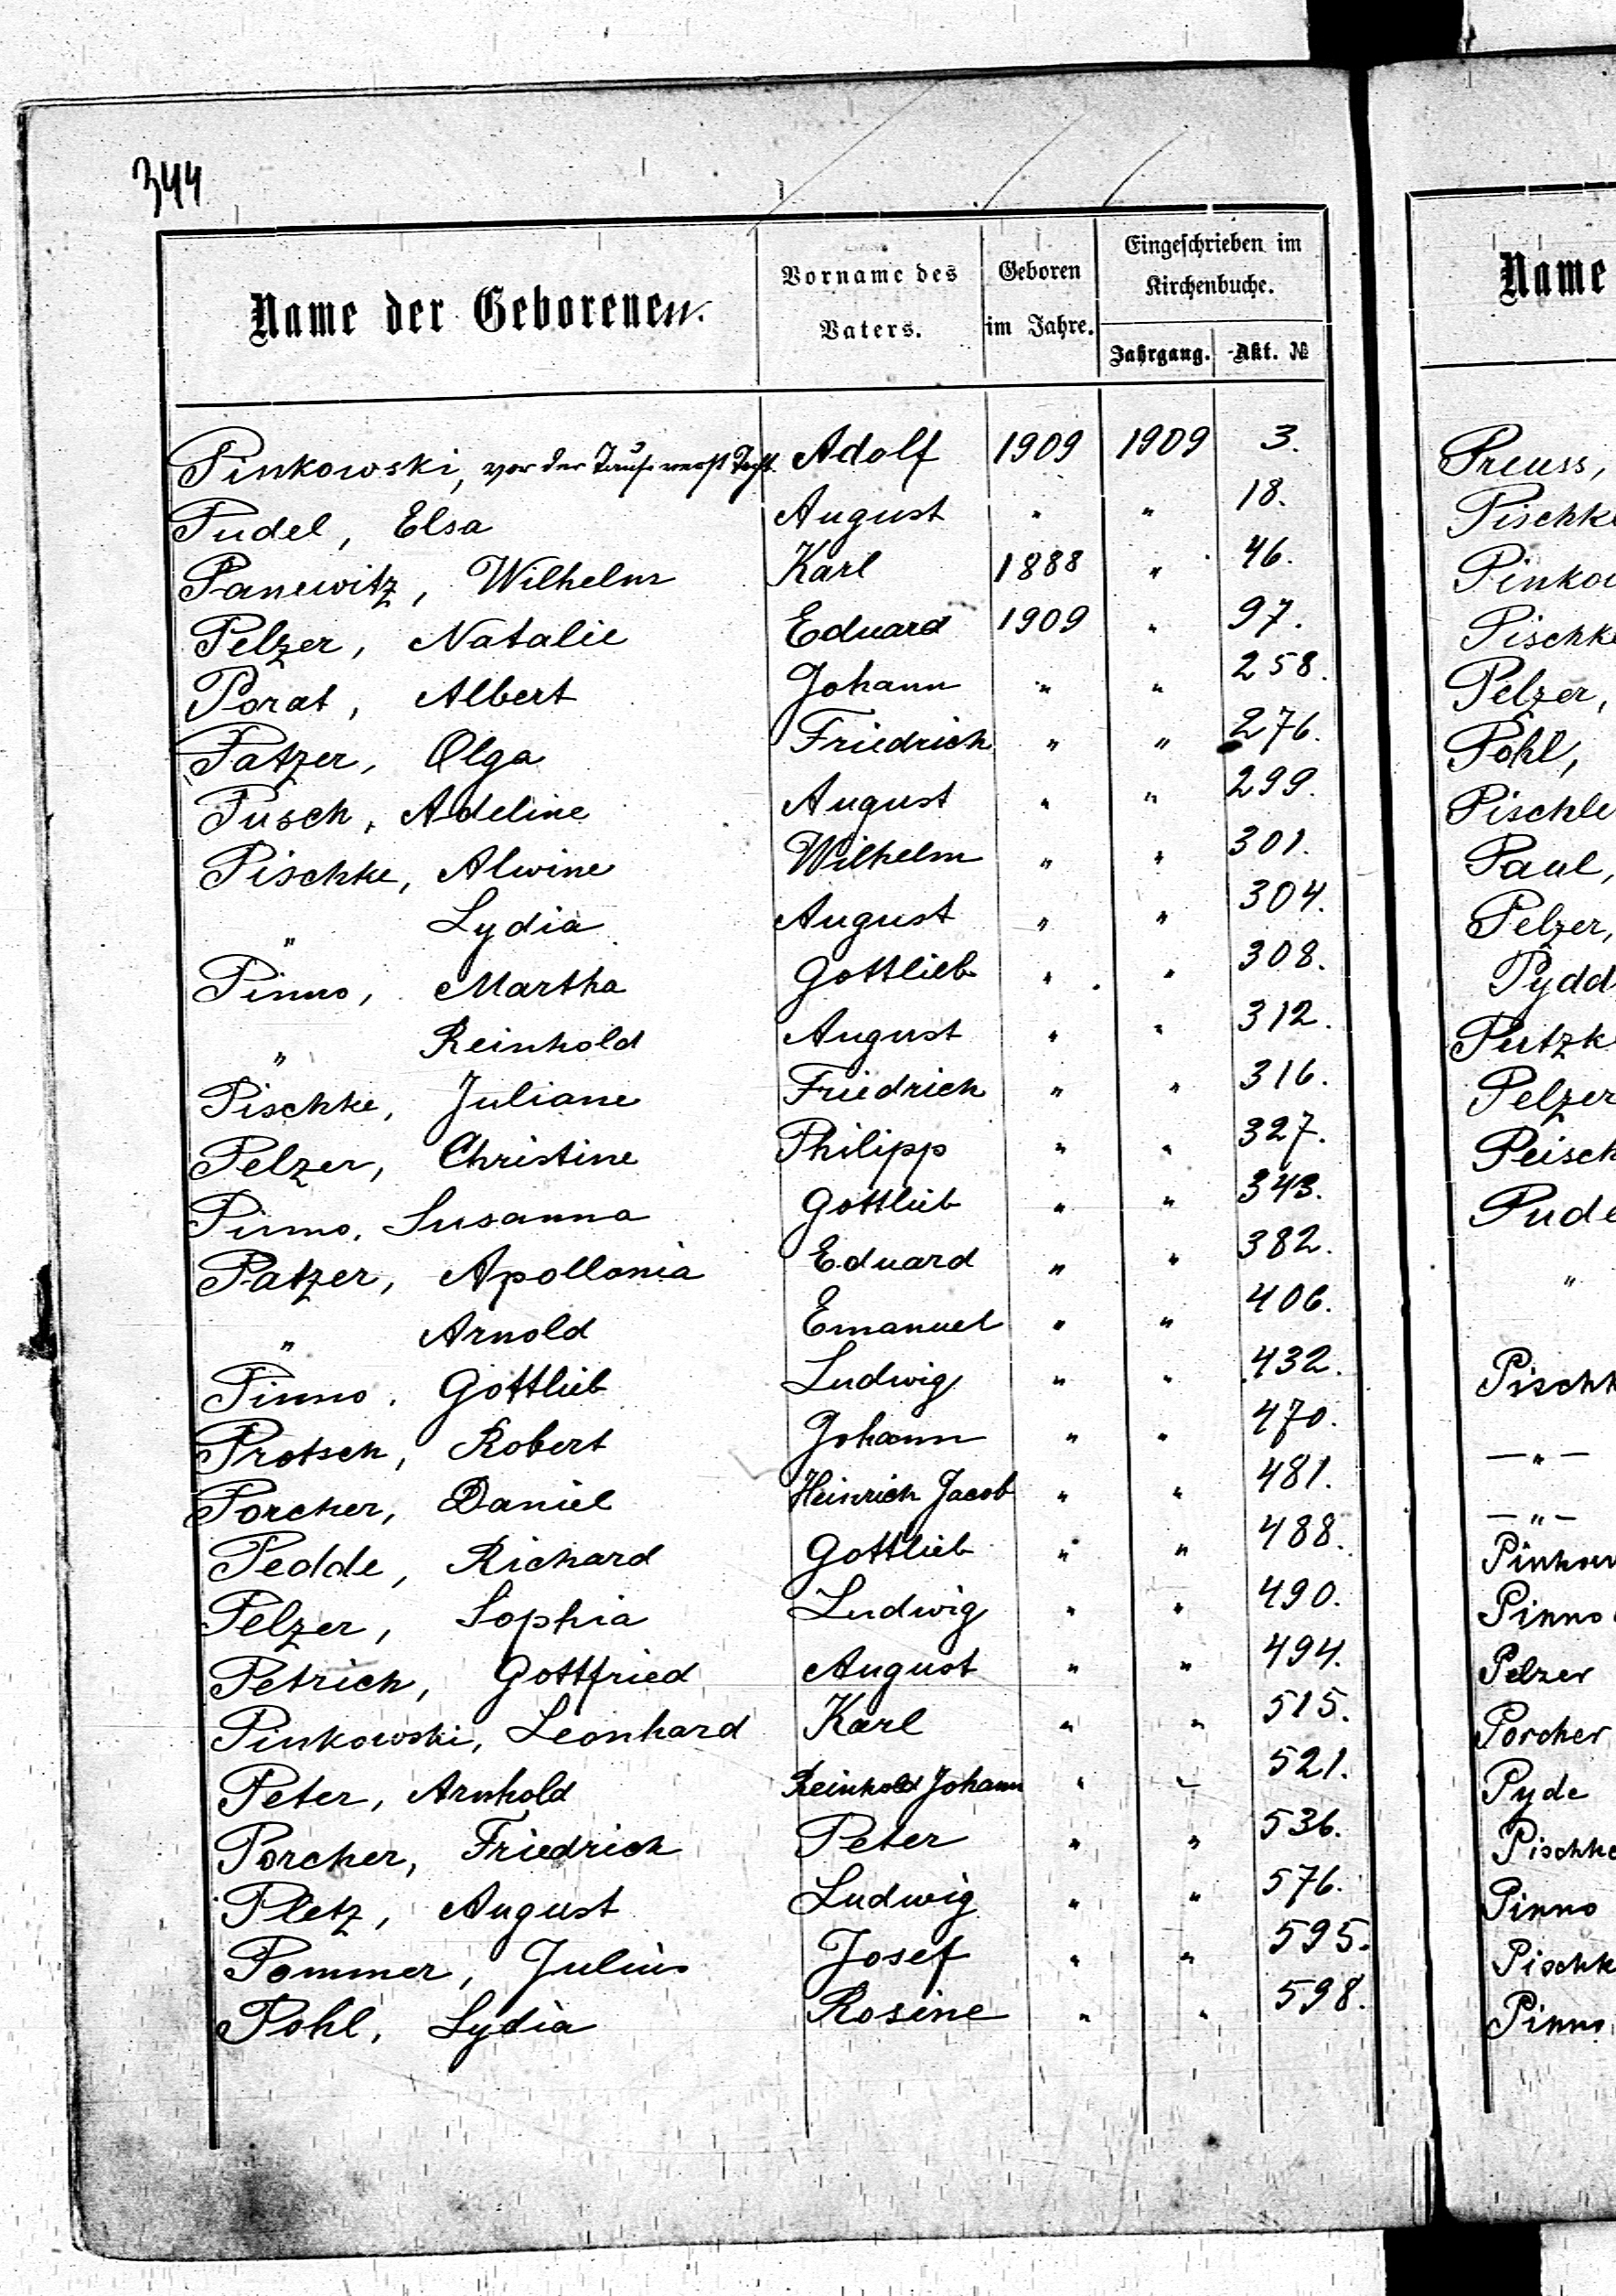 344
Name der Geborenen.
Vorname des Vaters.
Geboren im Jahre.
Eingeschrieben im Kirchenbuche.
Jahrgang. Akt. №
Pinkowski, vor der Taufe verst. Tocht. Adolf 1909 1909 3.
Pudel, Elsa August " " 18.
Panewitz, Wilhelm Karl 1888 " 46.
Pelzer, Natalie Eduard 1909 " 97.
Porat, Albert Johann " " 258.
Patzer, Olga Friedrich " " 276.
Pusch, Adeline August " " 299.
Pischke, Alwine Wilhelm " " 301.
" Lydia August " " 304.
Pinno, Martha Gottlieb " " 308.
" Reinhold August " " 312.
Pischke, Juliane Friedrich " " 316.
Pelzer, Christine Philipp " " 327.
Pinno, Susanna Gottlieb " " 343.
Patzer, Apollonia Eduard " " 382.
" Arnold Emanuel " " 406.
Pinno, Gottlieb Ludwig " " 432.
Protsch, Robert Johann " " 470.
Porcher, Daniel Heinrich Jacob " " 481.
Pedde, Richard Gottlieb " " 488.
Pelzer, Sophia Ludwig " " 490.
Petrich, Gottfried August " " 494.
Pinkowski, Leonhard Karl " " 515.
Peter, Arnhold Reinhold Johann " " 521.
Porcher, Friedrich Peter " " 536.
Pletz, August Ludwig " " 576.
Pommer, Julius Josef " " 595.
Pohl, Lydia Rosine " " 598.
Name
Preuss,
Pischke
Pinkow
Pischke
Pelzer,
Pohl,
Pischle
Paul,
Pelzer,
Pydd
Putzk
Pelzer
Peisch
Pude
"
Pischk
— " —
— " —
Pinkow
Pinno
Pelzer
Porcher
Pyde
Pischke
Pinno
Pischk
Pinno